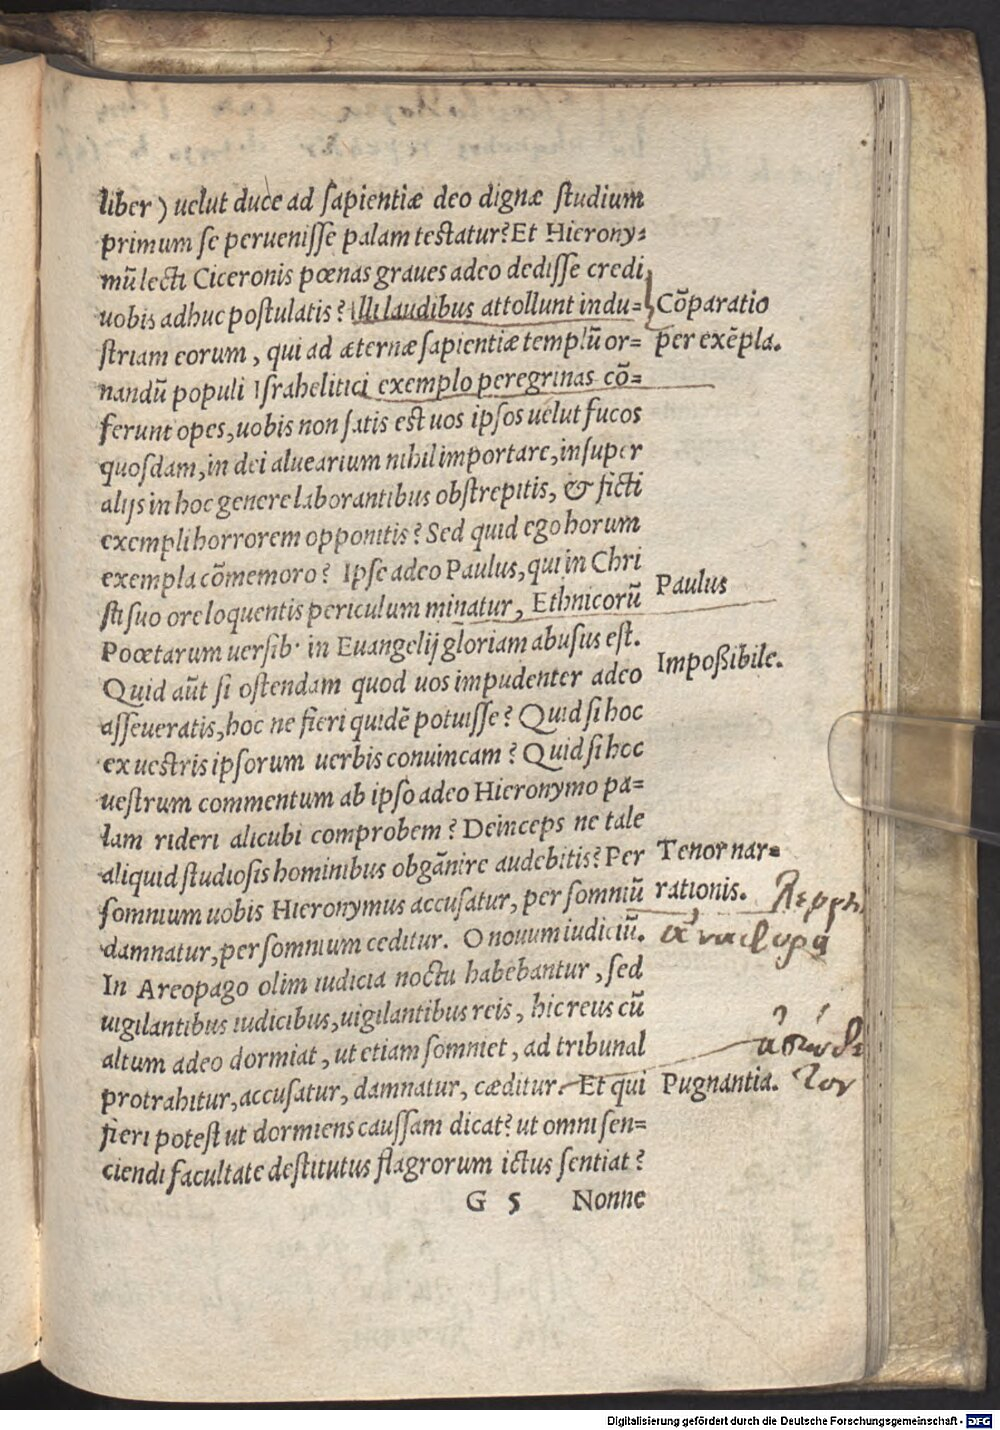 liber) uelut duce ad sapientiæ deo dignæ studium
primum se peruenisse palam testatur? Et Hierony⸗
mũ lecti Ciceronis pœnas graues adeo dedisse credi
uobis adhuc postulatis? Illi laudibus attollunt indu⸗
Cõparatio
striam eorum, qui ad æternæ sapientiæ templũ or⸗
per exẽpla.
nandũ populi Israhelitici exemplo peregrinas cõ⸗
ferunt opes, uobis non satis est uos ipsos uelut fucos
quosdam, in dei aluearium nihil importare, insuper
alijs in hoc genere laborantibus obstrepitis, & ficti
exempli horrorem opponitis? Sed quid ego horum
exempla cõmemoro? Ipse adeo Paulus, qui in Chri
Paulus
sti suo ore loquentis periculum minatur, Ethnicorũ
Poœtarum uersib. in Euangelij gloriam abusus est.
Impoßibile.
Quid aũt si ostendam quod uos impudenter adeo
asseueratis, hoc ne fieri quidẽ potuisse? Quid si hoc
ex uestris ipsorum uerbis conuincam? Quid si hoc
uestrum commentum ab ipso adeo Hieronymo pa⸗
lam rideri alicubi comprobem? Deinceps ne tale
aliquid studiosis hominibus obgãnire audebitis? Per
Tenor nar⸗
somnium uobis Hieronymus accusatur, per somniũ
rationis.
damnatur, per somnium ceditur. O nouum iudiciũ.
ἀναφορὰ
In Areopago olim iudicia noctu habebantur, sed
uigilantibus iudicibus, uigilantibus reis, hic reus cũ
altum adeo dormiat, ut etiam somniet, ad tribunal
protrahitur, accusatur, damnatur, cæditur. Et qui
Pugnantia.
τον
fieri potest ut dormiens caussam dicat? ut omni sen⸗
ciendi facultate destitutus flagrorum ictus sentiat?
G 5 Nonne
Digitalisierung gefördert durch die Deutsche Forschungsgemeinschaft - DFG